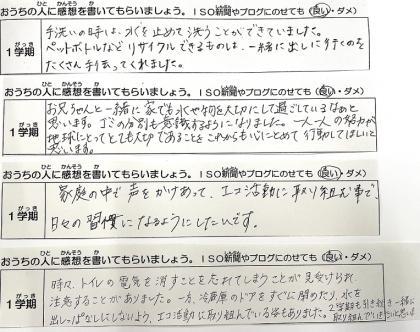 おうちの人に感想を書いてもらいましょう。ISO新聞やブログにのせても(良い・ダメ)
1学期
手洗いの時は、水を止めて洗うことができていました。
ペットボトルなどリサイクルできるものは、一緒に出しに行くのを
たくさん手伝ってくれました。
おうちの人に感想を書いてもらいましょう。ISO新聞やブログにのせても(良い・ダメ)
1学期
お兄ちゃんと一緒に家でも水や物を大切にして過ごしているなあと
思います。ゴミの分別も意識するようになりました。一人一人の努力が
地球にとってとても大切であることをこれからも心にとめて行動してほしいと
思います。
おうちの人に感想を書いてもらいましょう。ISO新聞やブログにのせても(良い・ダメ)
1学期
家庭の中で声をかけあって、エコ活動に取り組む事で、
日々の習慣になるようにしたいです。
おうちの人に感想を書いてもらいましょう。ISO新聞やブログにのせても(良い・ダメ)
1学期
時々、トイレの電気を消すことを忘れてしまうことが見受けられ、
注意することがありました。一方、冷蔵庫のドアをすぐに閉めたり、水を
出しっぱなしにしないよう、エコ活動に取り組んでいる姿もありました。
2学期も引き続き一緒に
取り組んでいきたいと思います